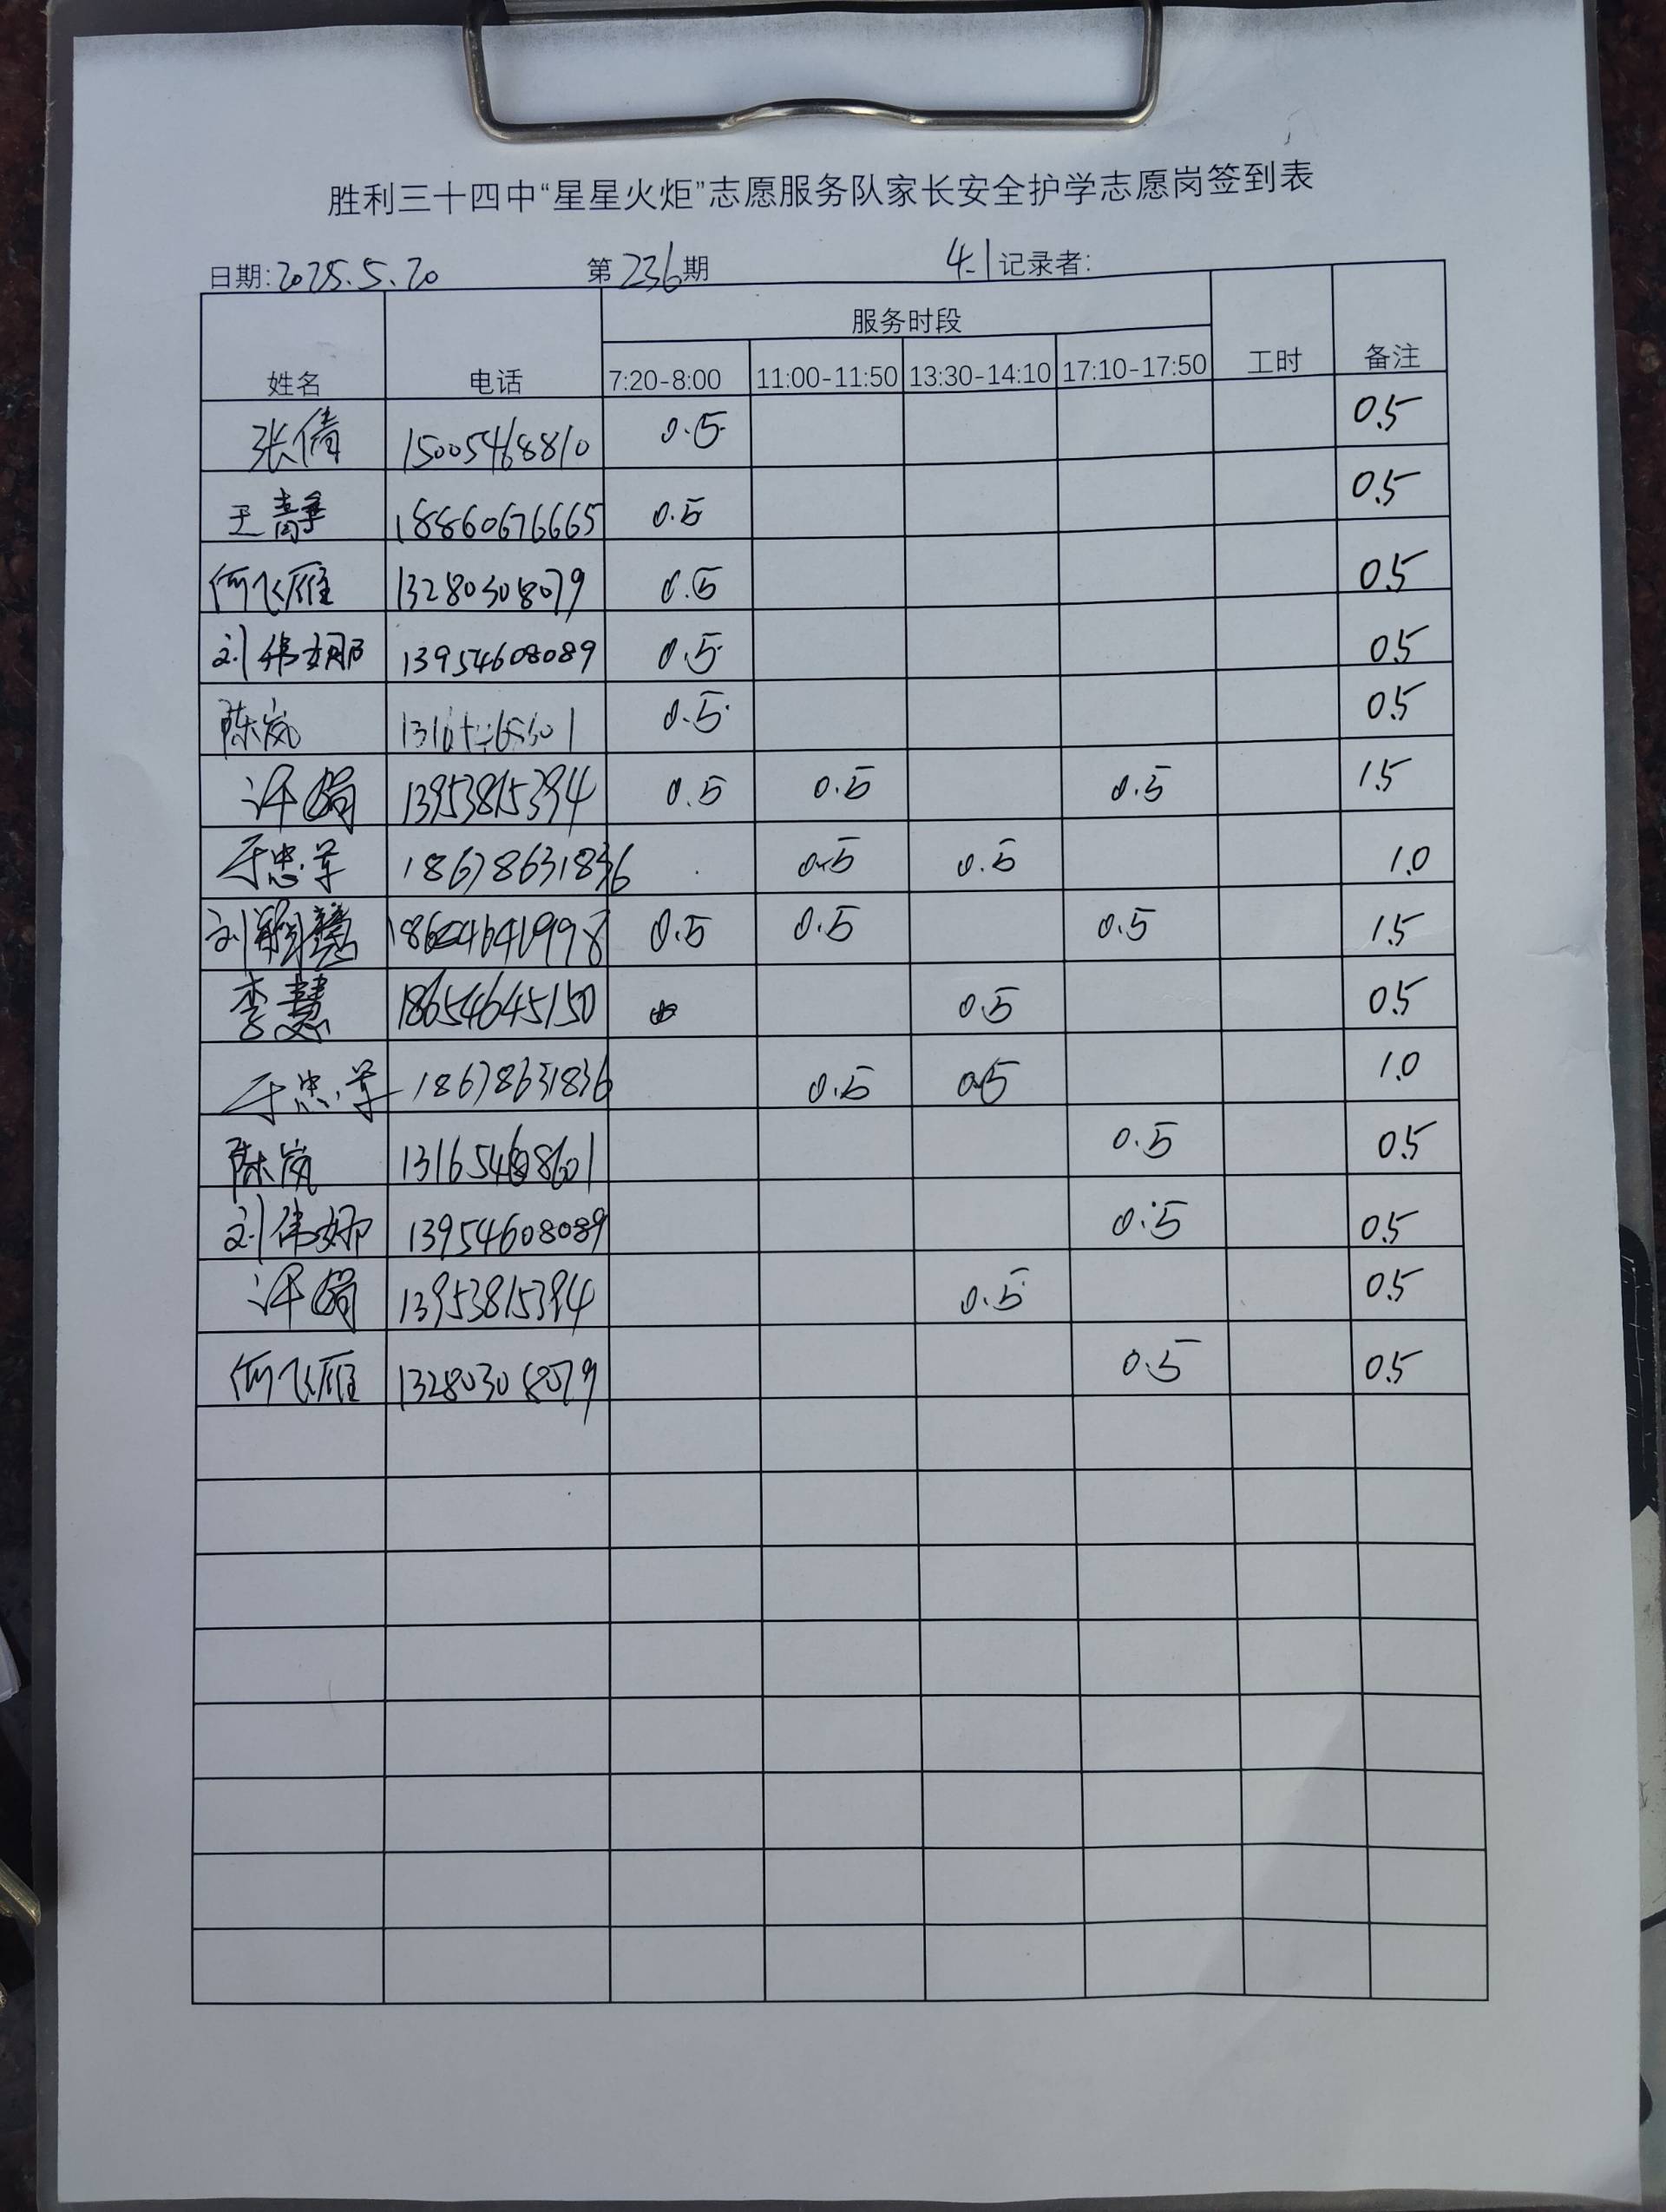 胜利三十四中“星星火炬”志愿服务队家长安全护学志愿岗签到表
日期:2025.5.20 第236期 4.1记录者:
服务时段
姓名 电话 7:20-8:00 11:00-11:50 13:30-14:10 17:10-17:50 工时 备注
张倩 15005468810 0.5 0.5
王静 18860676665 0.5 0.5
何飞雁 13280308079 0.5 0.5
刘伟娜 13954608089 0.5 0.5
陈岚 0.5 0.5
许娟 13953815394 0.5 0.5 0.5 1.5
于忠军 18678631836 0.5 0.5 1.0
刘翠慧 0.5 0.5 0.5 1.5
李慧 18654645150 0.5 0.5
于忠军 18678631836 0.5 0.5 1.0
陈岚 13165468601 0.5 0.5
刘伟娜 13954608089 0.5 0.5
许娟 13953815394 0.5 0.5
何飞雁 13280308079 0.5 0.5